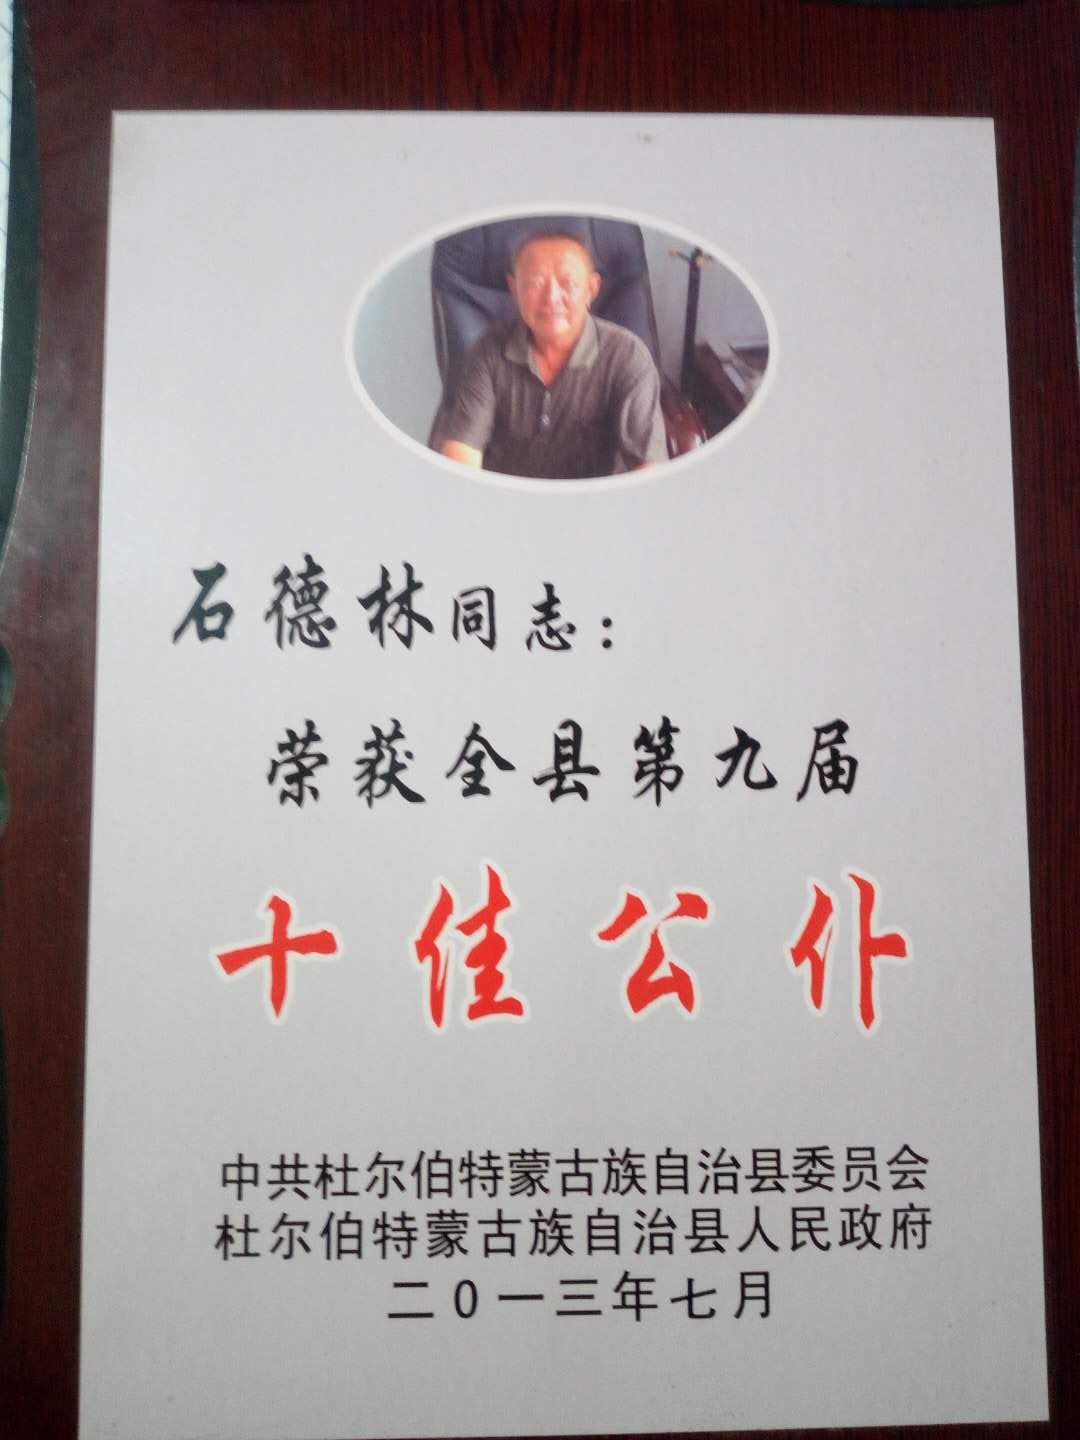 石德林同志：
荣获全县第九届
十佳公仆
中共杜尔伯特蒙古族自治县委员会
杜尔伯特蒙古族自治县人民政府
二0一三年七月